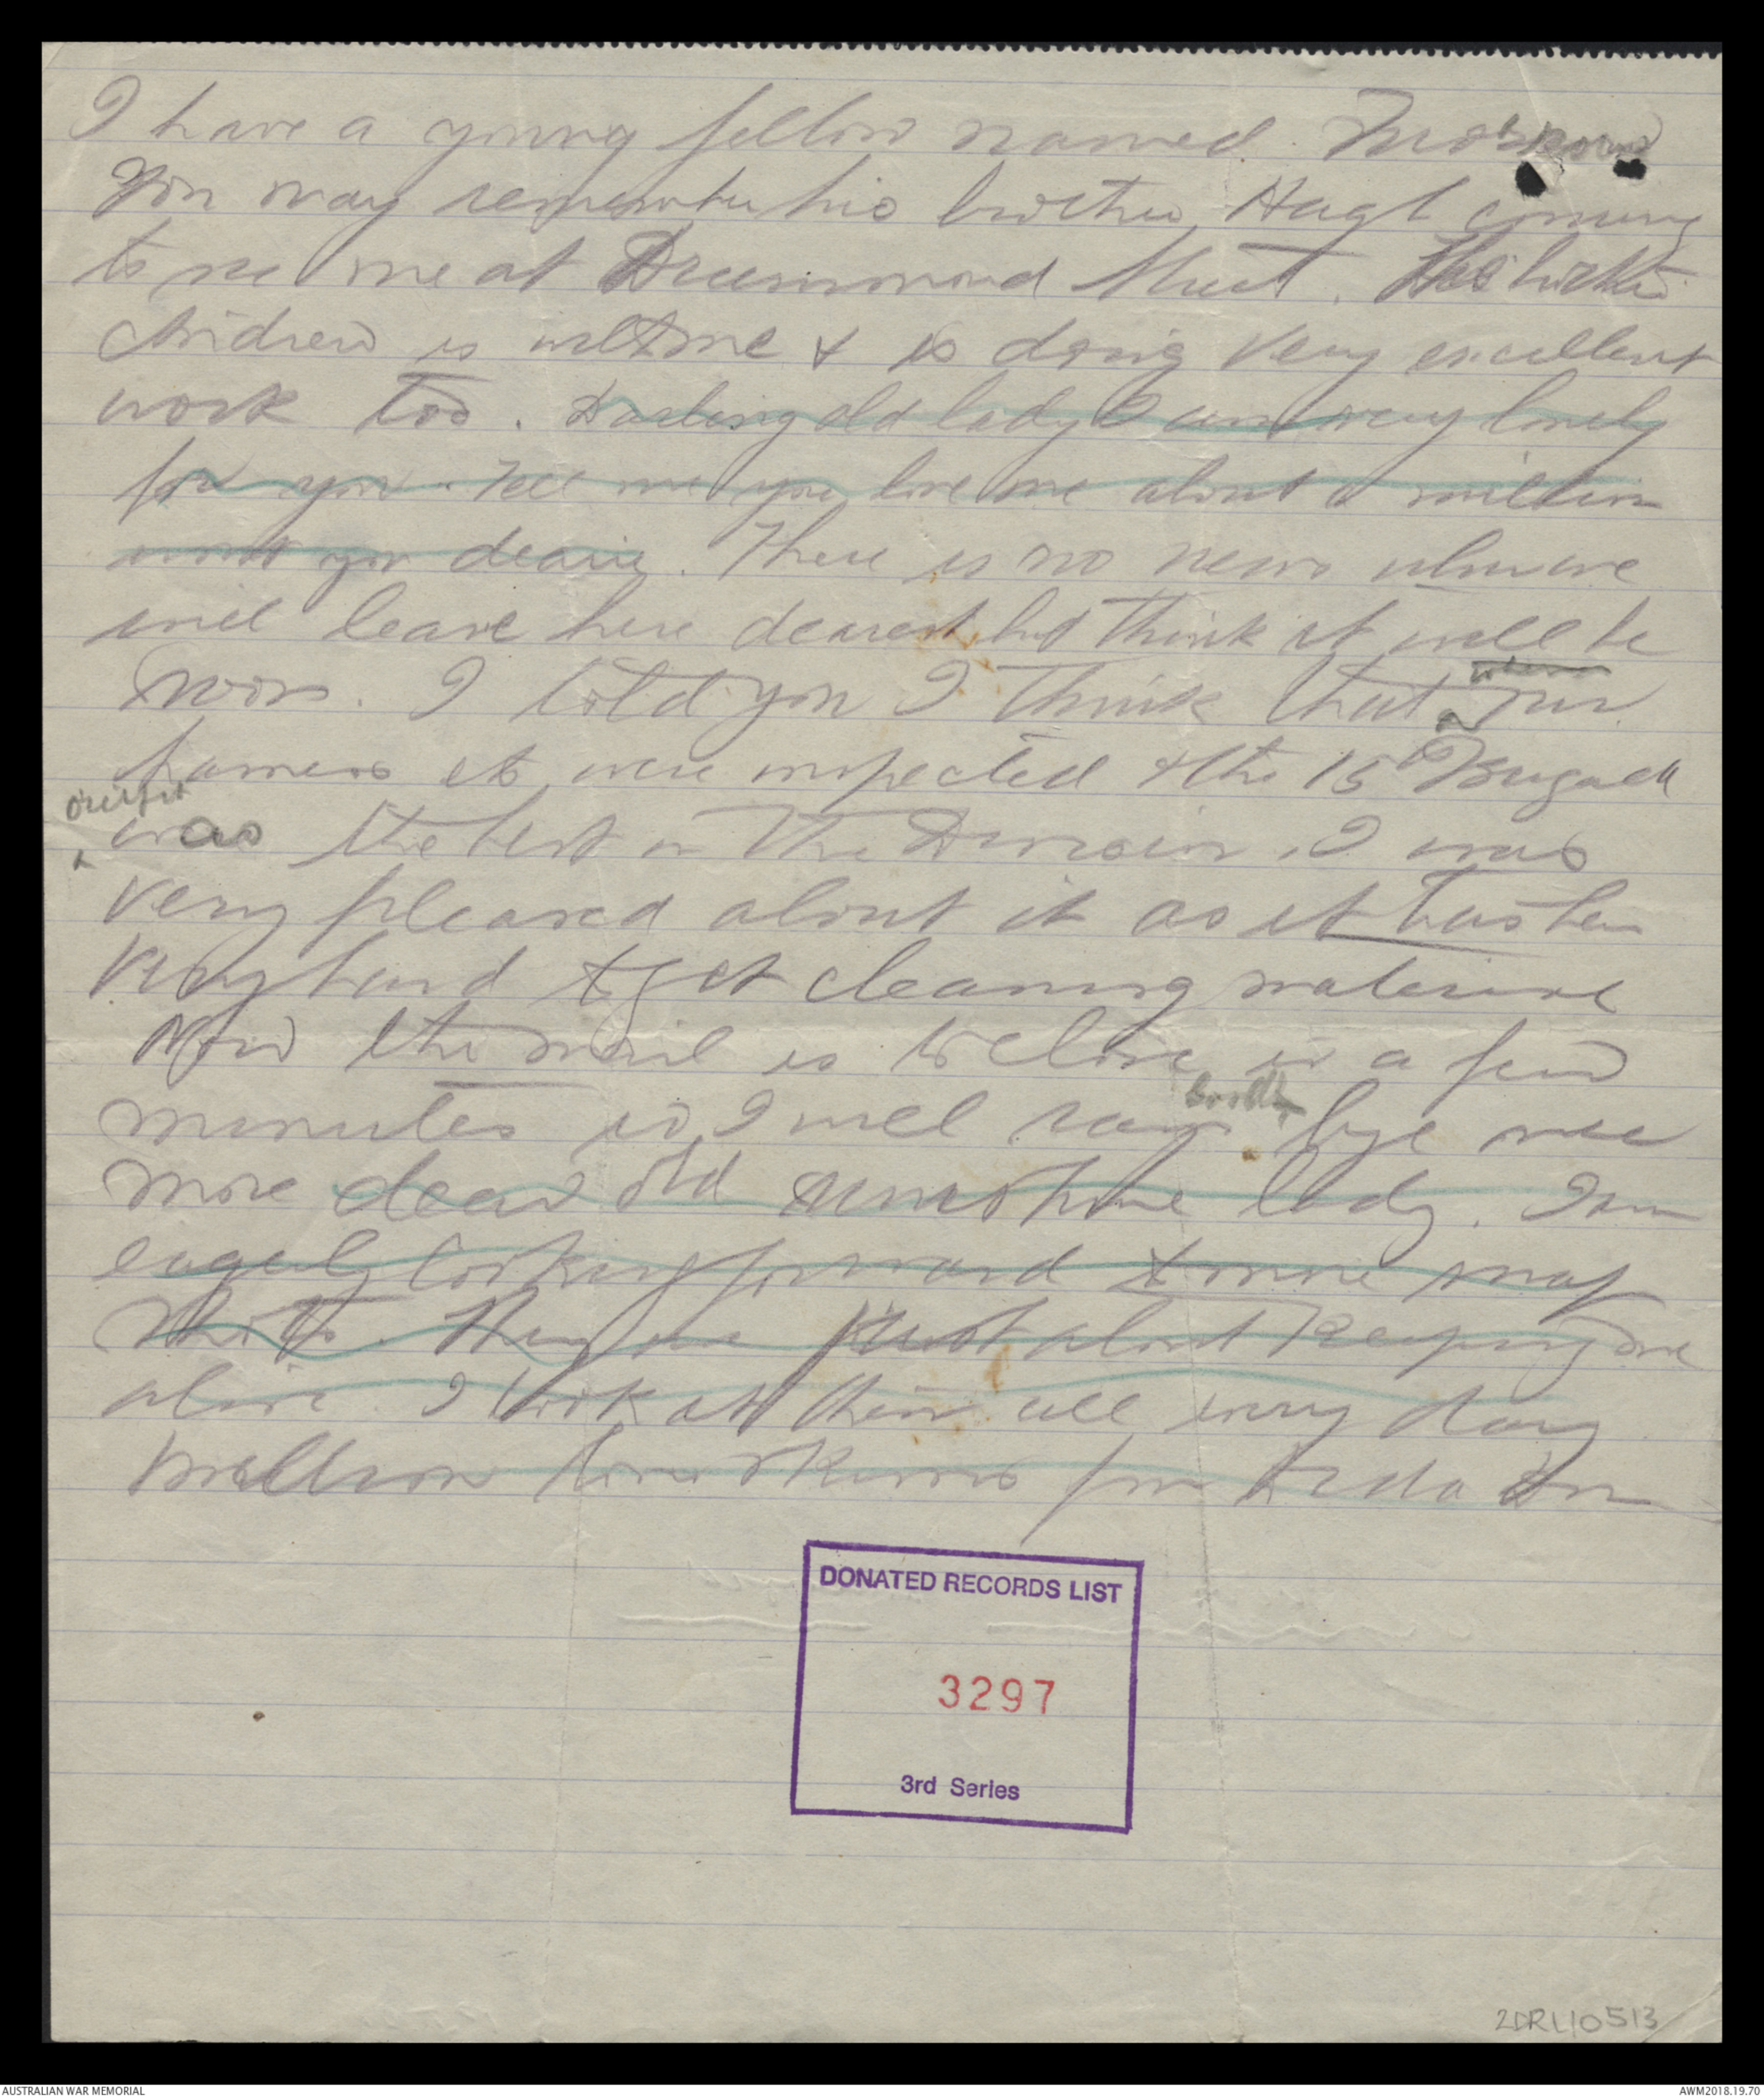 I have a young fellow named
You may remember his brother Hugh coming
to see me at Drummond Street. This brother
Andrew is with me & is doing very excellent
work too. Darling old lady I am very lonely
for you. Tell me you love me about a million
wont you dearie. There is no news when we
will leave here dearest but think it will be
soon. I told you I think that when our
harness etc were inspected & the 15th Brigade
outfit was the best in the Division. I was
very pleased about it as it has been
very hard to get cleaning material
Now the mail is to close in a few
minutes so I will say Goodbye once
more dear old sunshine lady. I am
eagerly looking forward to more snap
shots. They are just about keeping me
alive. I look at them all every day
Million love & kisses from
DONATED RECORDS LIST
3297
3rd Series
2DRL/0513
AUSTRALIAN WAR MEMORIAL
AWM2018.19.70